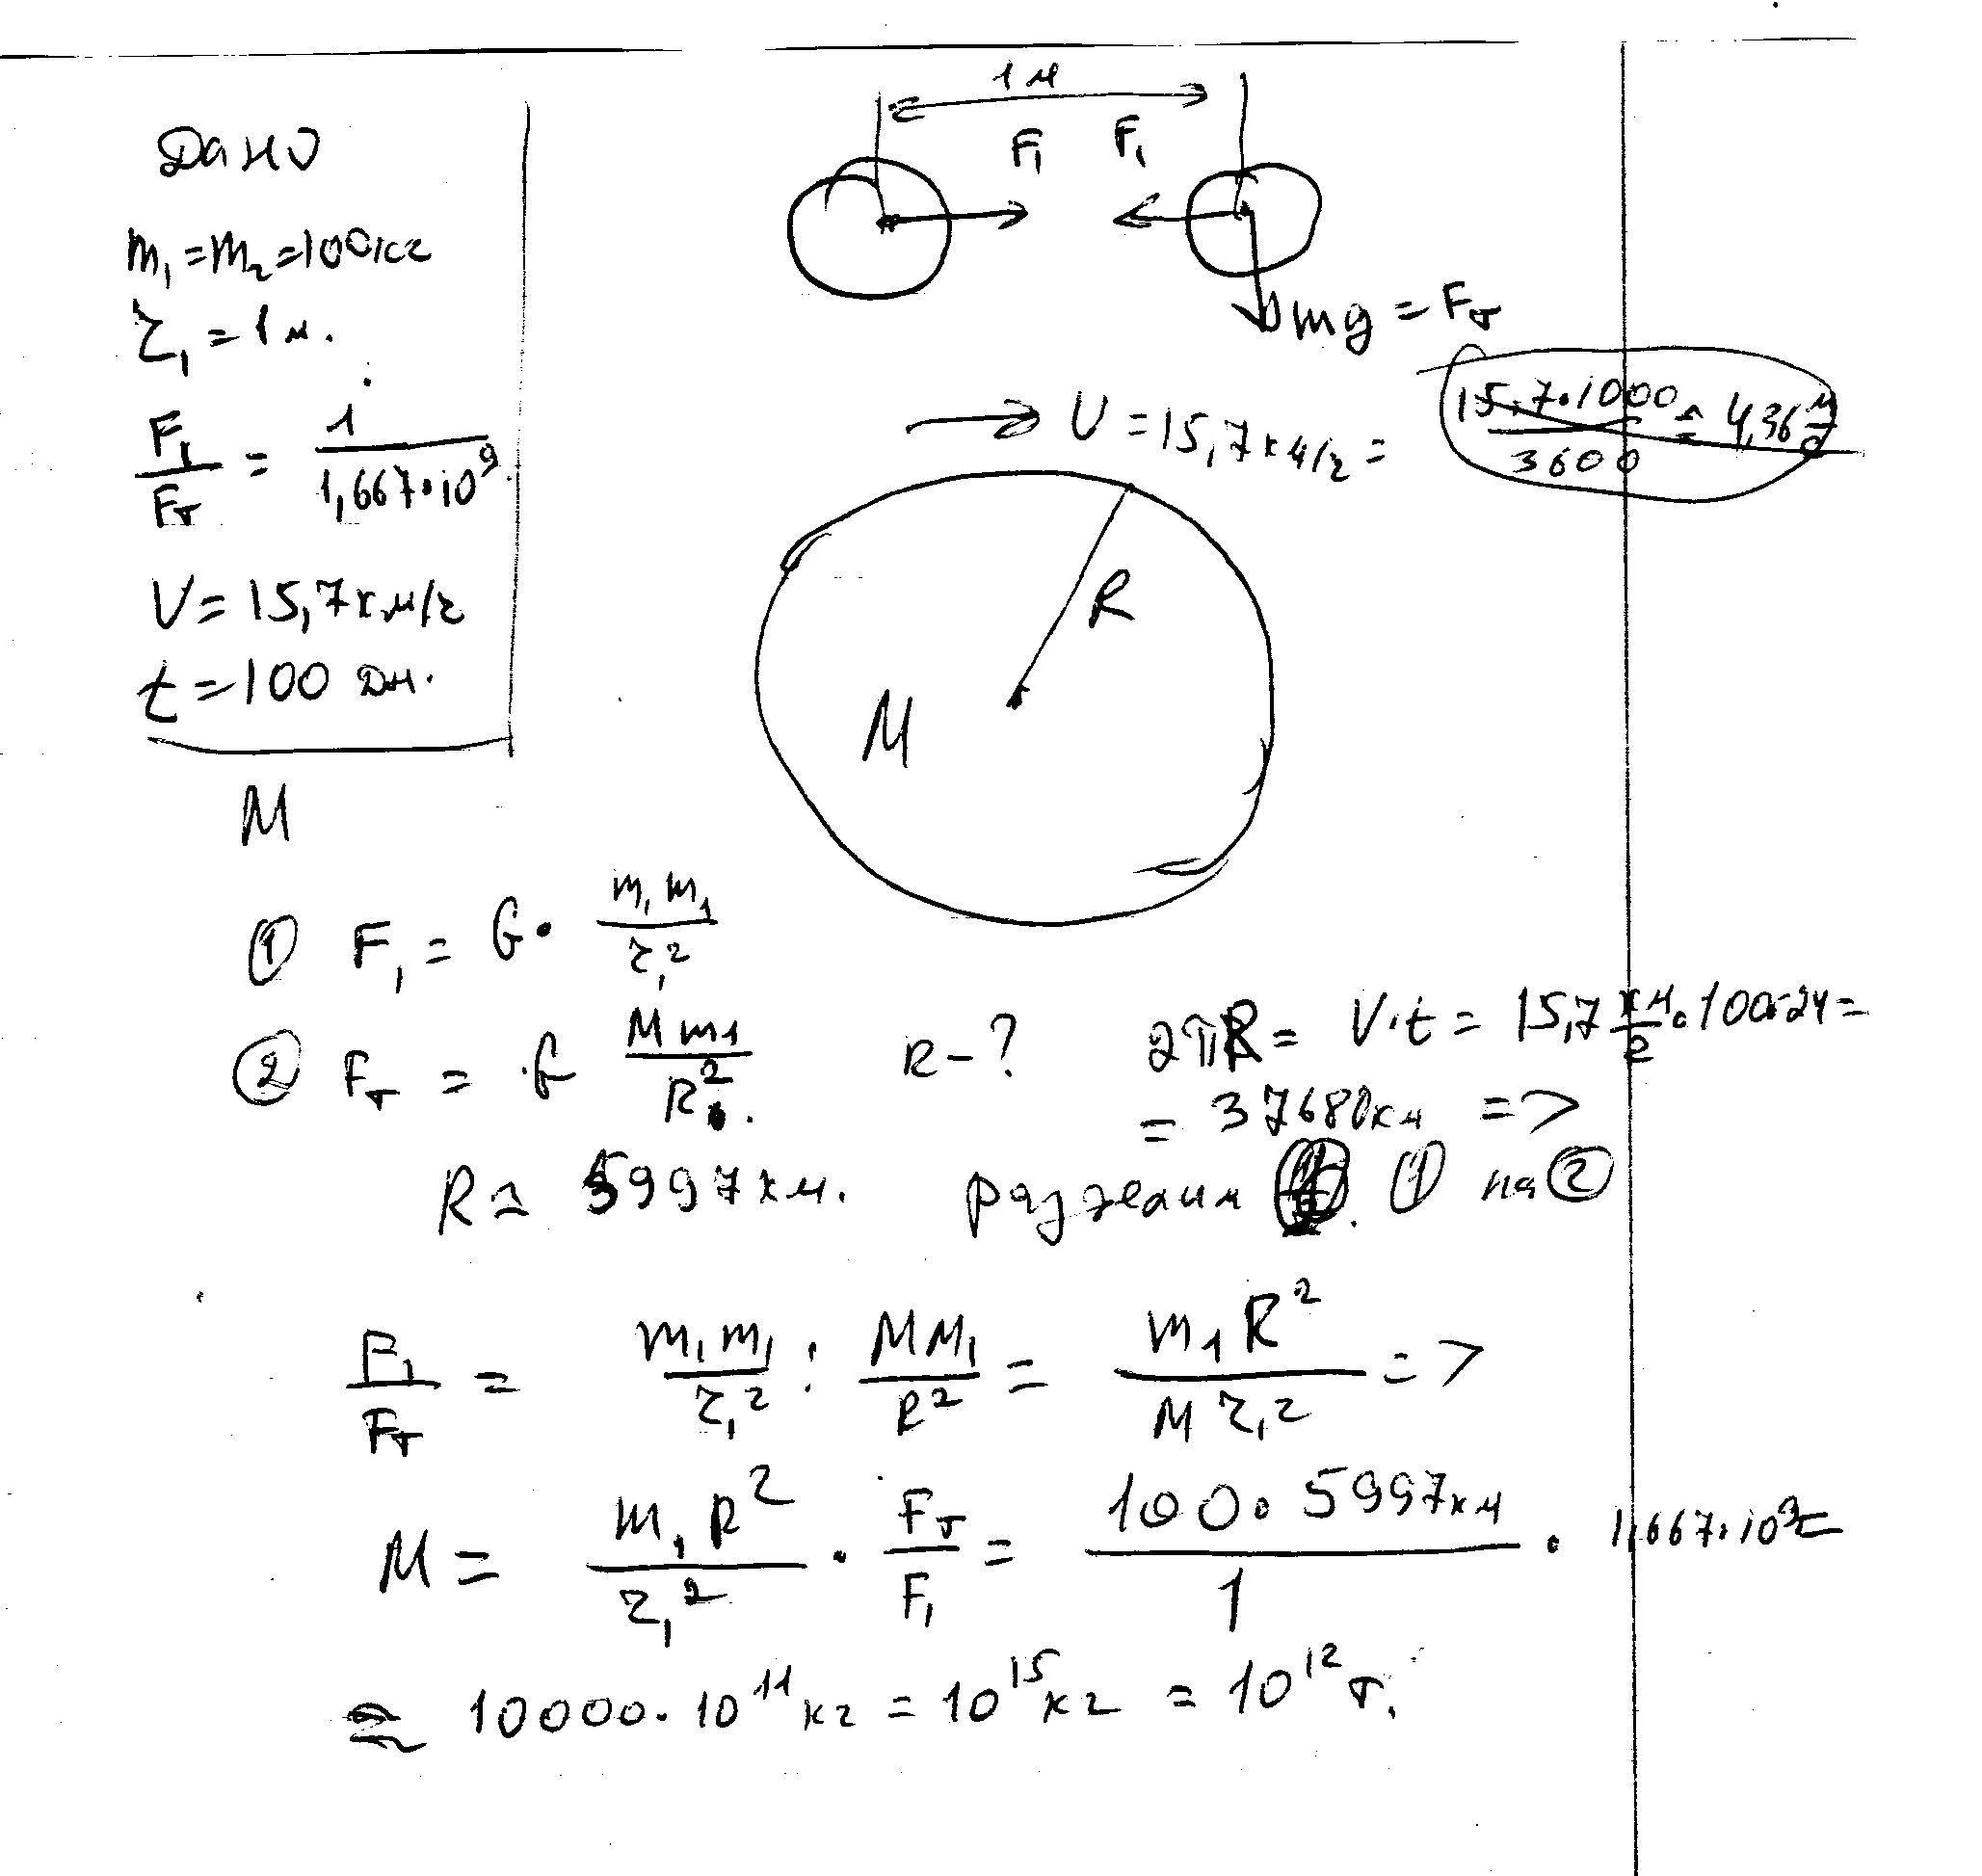 Дано
m₁ = m₂ = 100 кг
r₁ = 1 м.
F₁/Fт = 1/(1,667·10⁹)
V = 15,7 км/г
t = 100 дн.
M
1 м
F₁ F₁
mg = Fт
V = 15,7 км/г = 15,7·1000/3600 = 4,36 м/с
R
M
① F₁ = G · m₁m₁/r₁²
② Fт = G Mm₁/R². R-? 2πR = V·t = 15,7 км/г · 100·24 =
= 37680 км =>
R ≈ 5997 км. разделим ① на ②
F₁/Fт = m₁m₁/r₁² : Mm₁/R² = m₁R²/Mr₁² =>
M = m₁R²/r₁² · Fт/F₁ = 100·5997км/1 · 1,667·10⁹ =
≈ 10000·10¹¹ кг = 10¹⁵ кг = 10¹² т.